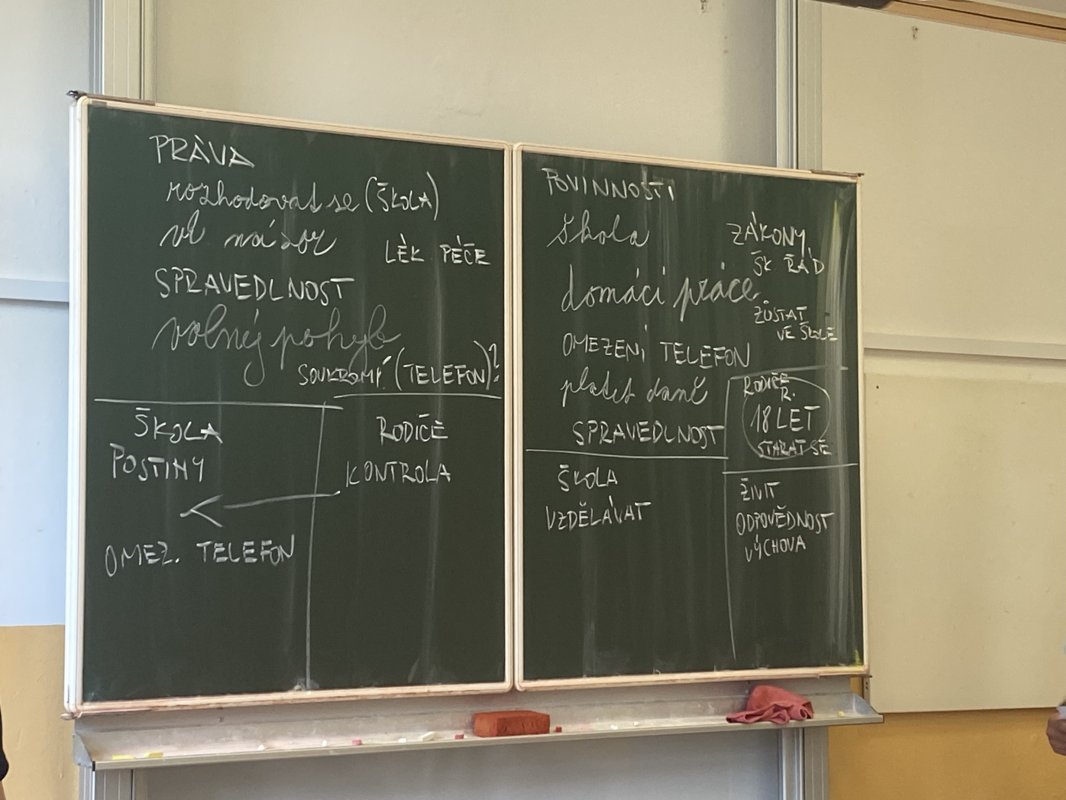 PRÁVA
rozhodovat se (ŠKOLA)
vl názor
LÉK PÉČE
SPRAVEDLNOST
volný pohyb
SOUKROMÍ (TELEFON)?
ŠKOLA
POSTIHY
OMEZ. TELEFON
RODIČE
KONTROLA
POVINNOSTI
škola
ZÁKONY,
ŠK ŘÁD
domácí práce
ZŮSTAT
VE ŠKOLE
OMEZENÍ TELEFON
platit daně
SPRAVEDLNOST
RODIČE
R.
18 LET
STARAT SE
ŠKOLA
VZDĚLÁVAT
ŽIVIT
ODPOVĚDNOST
VÝCHOVA